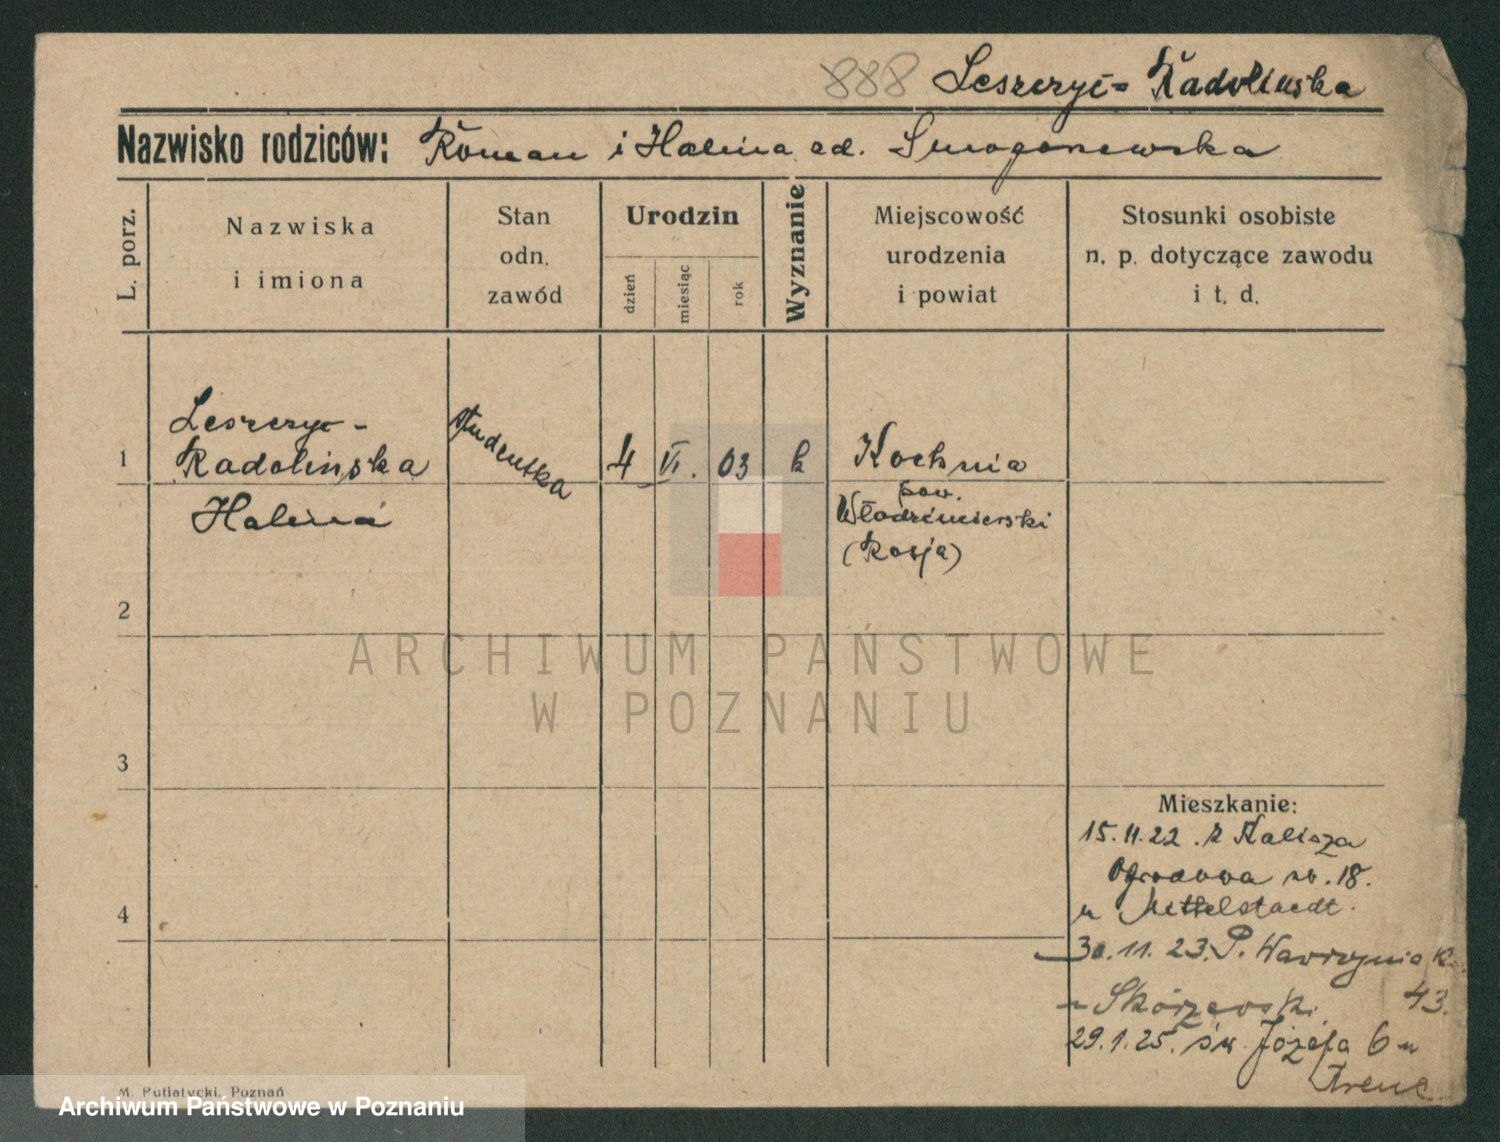 888 Leszczyc-Radolińska
Nazwisko rodziców: Roman i Halina zd. Smogorzewska
L. porz.
Nazwiska
i imiona
Stan
odn.
zawód
Urodzin
dzień
miesiąc
rok
Wyznanie
Miejscowość
urodzenia
i powiat
Stosunki osobiste
n. p. dotyczące zawodu
i t. d.
1
Leszczyc-
Radolińska
Halina
studentka
4 VI. 03 k
Kochnia
pow.
Włodzimierski
(Rosja)
2
3
4
Mieszkanie:
15.11.22. z Kalisza
Ogrodowa nr. 18.
u Mittelstaedt.
30.11.23. P. Wawrzyniaka
43.
u Skórzewski
29.1.25. św. Józefa 6 u
M. Putiatycki, Poznań
ARCHIWUM PAŃSTWOWE
W POZNANIU
Archiwum Państwowe w Poznaniu